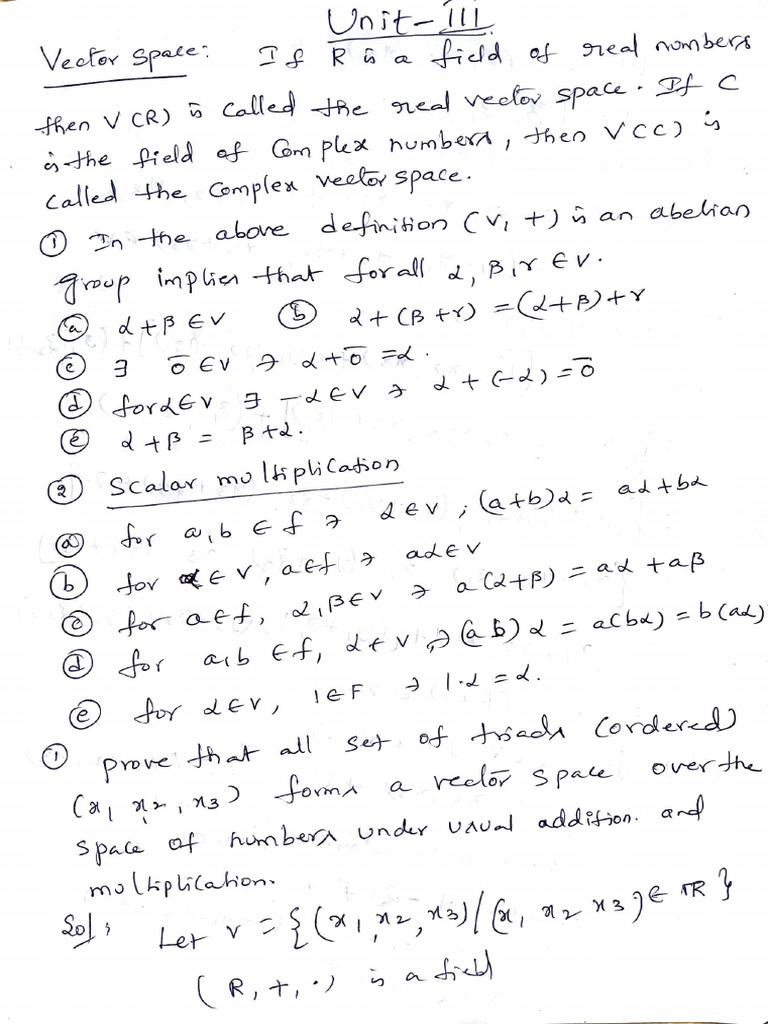 Unit-III
Vector space: If R is a field of real numbers
then V(R) is called the real vector space. If C
is the field of Complex numbers, then V(C) is
called the Complex vector space.
① In the above definition (V, +) is an abelian
group implies that for all α, β, γ ∈ V.
ⓐ α+β ∈ V ⓑ α+(β+γ) = (α+β)+γ
ⓒ ∃ ō ∈ V ∋ α+ō = α.
ⓓ for α ∈ V ∃ -α ∈ V ∋ α+(-α) = ō
ⓔ α+β = β+α.
② Scalar multiplication
ⓐ for a,b ∈ f ∋ α ∈ V ; (a+b)α = aα+bα
ⓑ for α ∈ V, a ∈ f ∋ aα ∈ V
ⓒ for a ∈ f, α,β ∈ V ∋ a(α+β) = aα+aβ
ⓓ for a,b ∈ f, α ∈ V, ∋ (ab)α = a(bα) = b(aα)
ⓔ for α ∈ V, 1 ∈ F ∋ 1·α = α.
① prove that all set of triads (ordered)
(x1, x2, x3) forms a vector space over the
space of numbers under usual addition. and
multiplication.
Sol: Let V = {(x1, x2, x3)/(x1 x2 x3) ∈ IR}
(R, +, ·) is a field